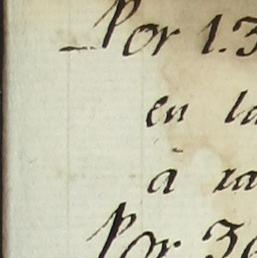 Por 1.3
en la
à ra
Por 36